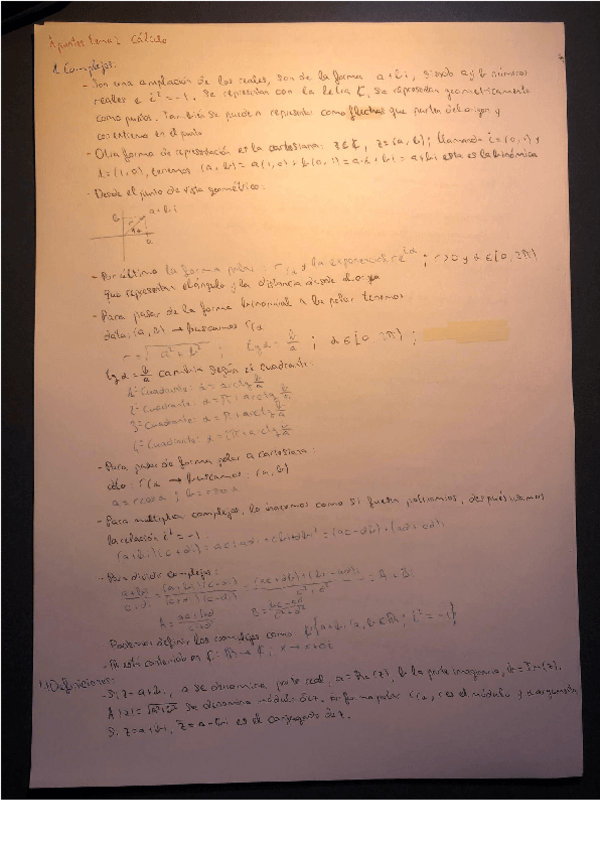 Apuntes tema 1 Cálculo
1. Complejos:
- Son una ampliación de los reales, son de la forma a+bi, siendo a y b números
reales e i² = -1. Se representan con la letra ℂ, se representan geométricamente
como puntos. También se pueden representar como flechas que parten del origen y
en el punto
- Otra forma de representación es la cartesiana: z∈ℂ, z=(a,b); llamando i=(0,1) y
1=(1,0), tenemos (a,b) = a(1,0)+b(0,1) = a·1+b·i = a+bi esta es la binómica
- Desde el punto de vista geométrico:
b a+bi
r
α
a
- Por último la forma polar: r_α y la exponencial re^{iα}; r>0 y α∈[0,2π)
que representan el ángulo y la distancia desde el origen
- Para pasar de la forma binomial a la polar tenemos
dato: (a,b) → buscamos r_α
r = √(a²+b²) ; tg α = b/a ; α∈[0,2π) ;
tg α = b/a cambia según el cuadrante:
1º Cuadrante: α = arctg b/a
2º Cuadrante: α = π + arctg b/a
3º Cuadrante: α = π + arctg b/a
4º Cuadrante: α = 2π + arctg b/a
- Para pasar de forma polar a cartesiana:
dato: r_α → buscamos: (a,b)
a = r cos α ; b = r sen α
- Para multiplicar complejos, lo hacemos como si fuera polinomios, después usamos
la relación i² = -1:
(a+bi)(c+di) = ac + adi + cbi + bdi² = (ac-db) + (ad+cb)i
- Para dividir complejos:
(a+bi)/(c+di) = (a+bi)(c-di)/(c+di)(c-di) = (ac+db)+(bc-ad)i / c²+d² = A+Bi
A = (ac+bd)/(c²+d²) B = (bc-ad)/(c²+d²)
Podemos definir los complejos como ℂ{a+bi/a,b∈ℝ; i²=-1}
- ℝ está contenido en ℂ: ℝ → ℂ; x → x+0i
1.1 Definiciones:
- Si z = a+bi, a se denomina parte real, a = Re(z), b la parte imaginaria, b = Im(z).
A |z| = √(a²+b²) se denomina módulo de z. En forma polar r_α, r es el módulo y α argumento.
Si z = a+bi, z̄ = a-bi es el conjugado de z.